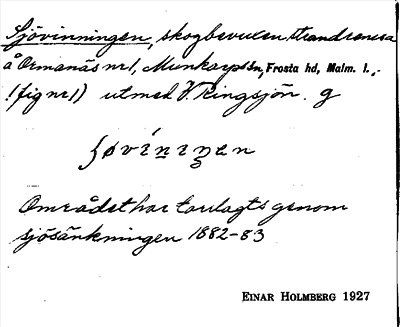 Sjövinningen, skogbevuxen strandremsa
å Ormanäs nr 1, Munkarps sn, Frosta hd, Malm. l.,
(fig nr 1) utmed V. Ringsjön. g
ʃøvíniŋen
Området har torrlagts genom
sjösänkningen 1882-83
EINAR HOLMBERG 1927